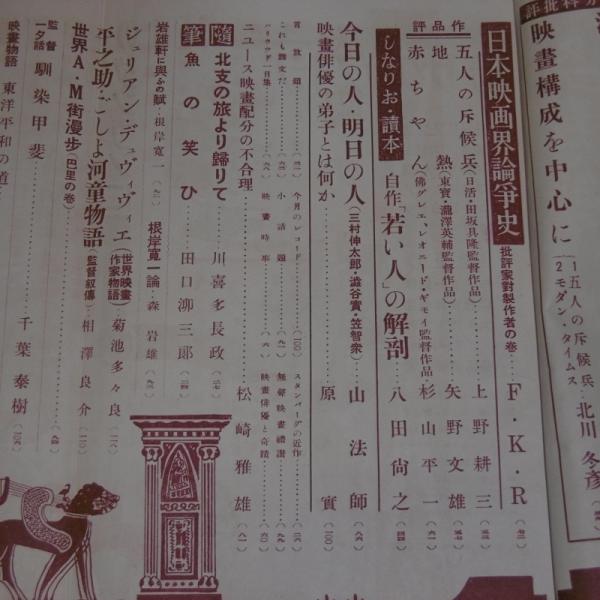 映畫構成を中心に
1 五人の斥候兵
2 モダン・タイムス
北川冬彦
日本映画界論爭史 批評家對製作者の卷 F・K・R
作品評
五人の斥候兵(日活・田坂具隆監督作品) 上野耕三
地熱(東寶・瀧澤英輔監督作品) 矢野文雄
赤ちやん(佛グレエ、レオニード・ギモイ監督作品) 杉山平一
しなりお・讀本 自作「若い人」の解剖 八田尙之
今日の人・明日の人(三村伸太郎・澁谷實・笠智衆) 山法師
映畫俳優の弟子とは何か 原實 (100)
今月のレコード (100)
スタンバーグの近作
これも雜文だ
小話題
無聲映畫禮讃
ハリウッド一日集
映畫時事
映畫俳優と奇蹟
ニユース映畫配分の不合理 松崎雅雄
隨筆
北支の旅より歸りて 川喜多長政
魚の笑ひ 田口泖三郎
岩雄軒に與ふの賦・根岸寬一
根岸寬一論・森岩雄
ジュリアン・デュヴィヴィエ(世界映畫作家物語) 菊池多々良
平之助・ごしよ河童物語 監督叙傳 相澤良介
世界A・M街漫步(巴里の卷)
監督一夕話 馴染甲斐 千葉泰樹
映畫物語 東洋平和の道